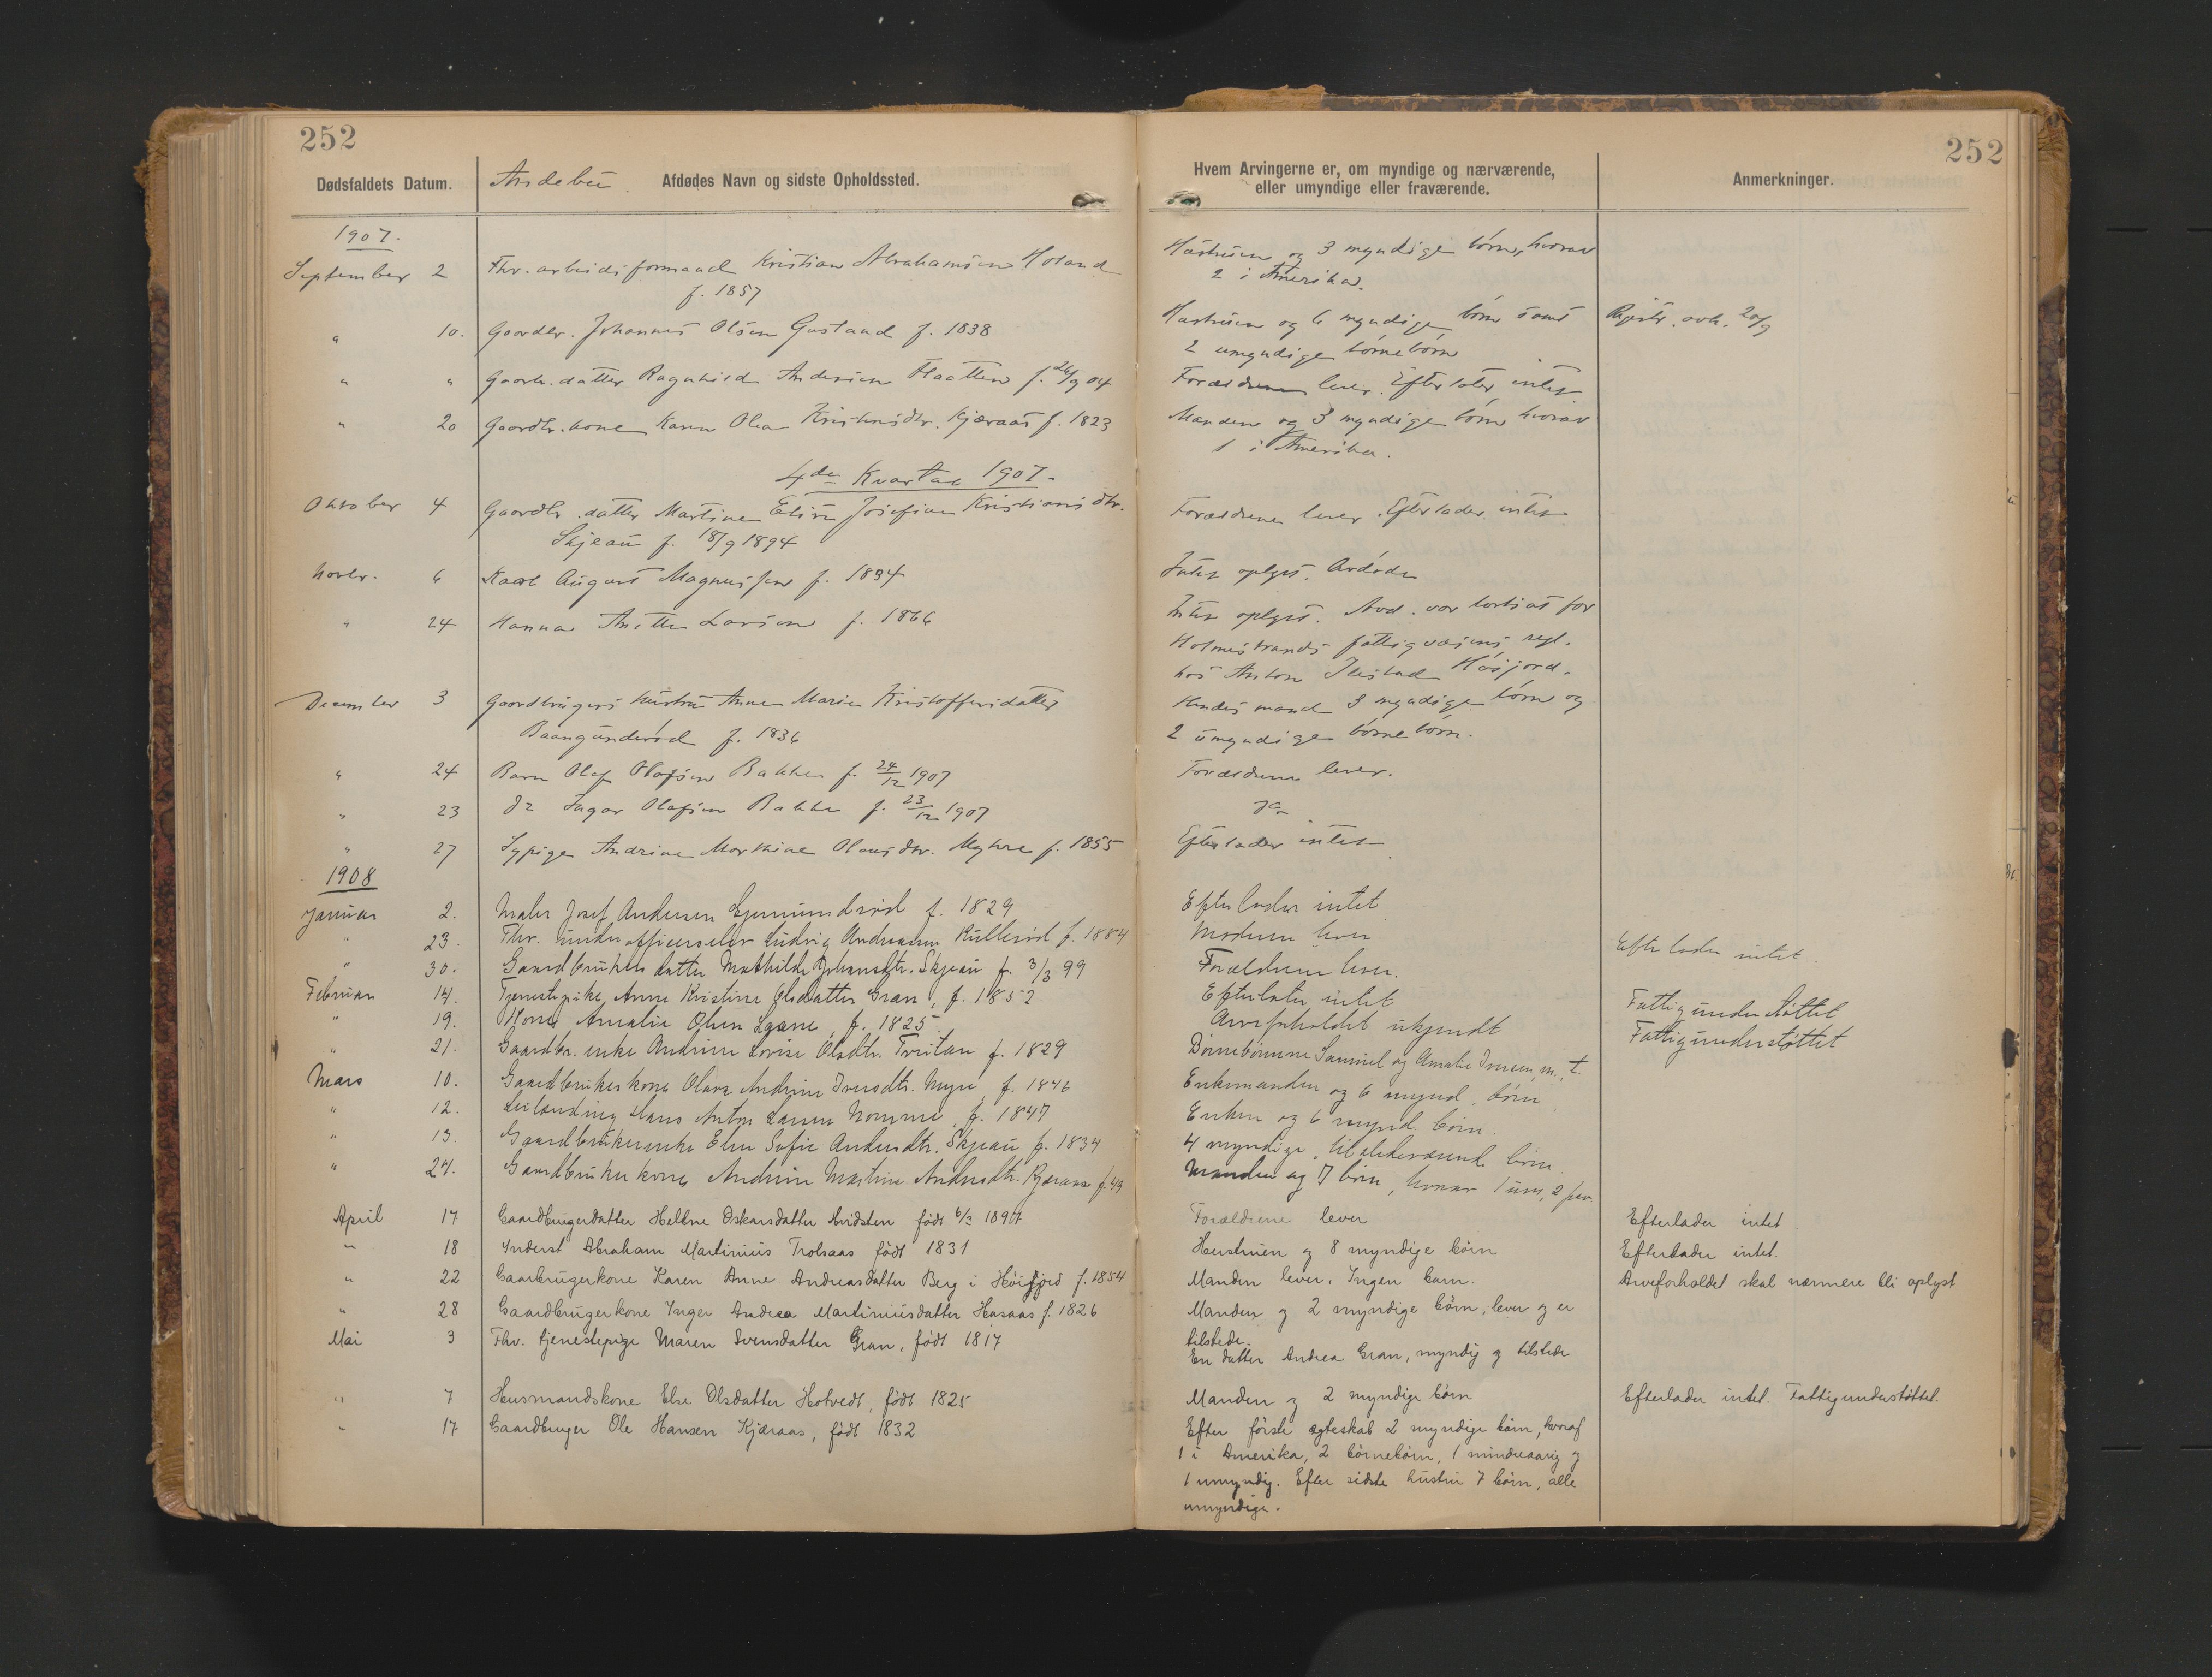 252
252
Dødsfaldets Datum.
Andebu. Afdødes Navn og sidste Opholdssted.
Hvem Arvingerne er, om myndige og nærværende,
eller umyndige eller fraværende.
Anmerkninger.
1907.
September 2 Fhv. arbeidsformand Kristian Abrahamsen Holand
f. 1857
Hustruen og 3 myndige børn, hvorav
2 i Amerika.
" 10. Gaardbr. Johannes Olsen Gustand f. 1838
Hustruen og 6 myndige børn samt
2 umyndige børnebørn
20/9
" " Gaardbr. datter Ragnhild Andersen Flaatten f. 26/9 04
Forældrene lever. Efterlater intet
" 20 Gaardbr. kone Karen Olea Kristensdtr. Kjæraas f. 1823
Manden og 3 myndige børn hvorav
1 i Amerika.
4de Kvartal 1907.
Oktober 4 Gaardbr. datter Martine Elise Josefine Kristiansdtr.
Skjeau f. 18/9 1894
Forældrene lever. Efterlader intet
Novbr. 6 Karl August Magnussen f. 1834
Intet oplyst.
" 24 Hanna Anette Larsen f. 1866
Intet oplyst. Avd. var bortsat for
Holmestrands fattigvæsens regl.
hos Anton Ilestad Høijord.
December 3 Gaardbrugers hustru Anne Marie Kristoffersdatter
Baangunderød f. 1836
Hendes mand 3 myndige børn og
2 umyndige børnebørn.
" 24 Barn Olaf Olafsen Bakke f. 24/12 1907
Forældrene lever.
" 23 do Ingar Olafsen Bakke f. 23/12 1907
do
" 27 Sypige Andrine Marthine Olausdtr. Myhre f. 1855
Efterlader intet
1908
Januar 2. Maler Josef Andersen Gjermundrød f. 1829
Efterlader intet
" 23. Fhv. underofficerselev Ludvig Andreassen Kullerød f. 1884
Moderen lever
Efterlader intet.
" 30. Gaardbrukers datter Mathilde Johansdtr. Skjeau f. 3/3 99
Forældrene lever.
Februar 14. Tjenestepike Anne Kristine Olsdatter Gran, f. 1852
Efterlater intet
Fattigunderstøttet
" 19. Kone Amalie Olsen f. 1825
Arveforholdet ukjendt
Fattigunderstøttet
" 21. Gaardbr. enke Andrine Lovise Olsdtr. Trevlan f. 1829
Børnebørnene Samuel og Amalie Iversen, m., t.
Mars 10. Gaardbrukerskone Olava Andrine Iversdtr. Myre, f. 1846
Enkemanden og 6 mynd. børn
" 12. Leilænding Hans Anton Larsen Nomme, f. 1847
Enken og 6 mynd. børn.
" 13. Gaardbrukerenke Elen Sofie Andersdtr. Skjeau f. 1834
4 myndige, tilstedeværende børn
" 24. Gaardbruker kone Andrine Martine Andersdtr. Kjæraas f. 49
Manden og 7 børn, hvorav 1 um, 2 frav.
April 17 Gaardbrugerdatter Hellene Oskarsdatter Hvidsten født 6/3 1897
Forældrene lever
Efterlader intet
" 18 Inderst Abraham Martinius Trolsaas født 1831
Hustruen og 8 myndige børn
Efterlader intet.
" 22 Gaarbrugerkone Karen Anne Andreasdatter Berg i Høijord f. 1854
Manden lever. Ingen barn.
Arveforholdet skal nærmere bli oplyst
" 28 Gaardbrugerkone Inger Andrea Martiniusdatter Hasaas f. 1826
Manden og 2 myndige børn; lever og er
tilstede.
Mai 3 Fhv. tjenestepige Maren Svensdatter Gran, født 1817
En datter Andrea Gran, myndig og tilstede
" 7 Husmandskone Else Olsdatter Hotvedt, født 1825
Manden og 2 myndige børn
Efterlader intet. Fattigunderstøttet.
" 17 Gaardbruger Ole Hansen Kjæraas, født 1832
Efter første egteskab 2 myndige børn, hvoraf
1 i Amerika, 2 børnebørn, 1 mindreaarig og
1 umyndig. Efter sidste hustru 7 børn, alle
umyndige.